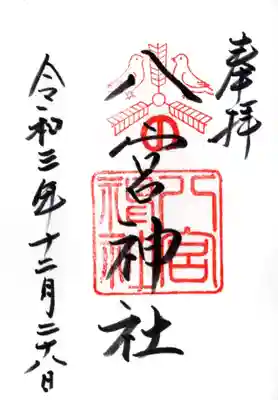 奉拝
八宮神社
八宮
神社
令和三年十二月二十八日